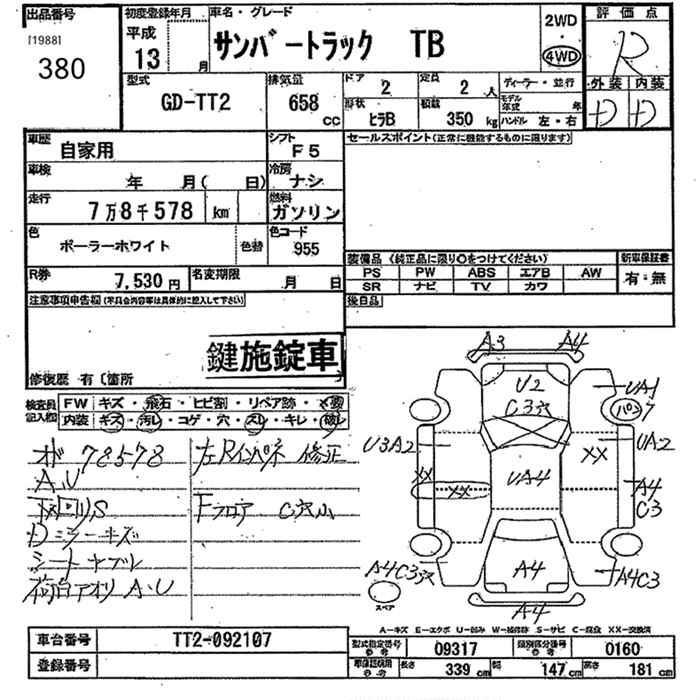 出品番号
[1988]
380
初度登録年月
平成
13 月
車名・グレード
サンバートラック TB
2WD
・
4WD
評価点
R
外装 内装
D D
型式
GD-TT2
排気量
658 cc
ドア
2
定員
2 人
ディーラー・並行
形状
ヒラB
積載
350 kg
モデル年式 年
ハンドル 左・右
車歴
自家用
シフト
F5
セールスポイント(正常に機能するものに限ります)
車検
年 月( 日)
冷房
ナシ
走行
7万8千578 km
燃料
ガソリン
色
ポーラーホワイト
色替
色コード
955
装備品 (純正品に限り○をつけてください)
新車保証書
PS PW ABS エアB AW
SR ナビ TV カワ
有・無
R券
7,530円
名変期限
月 日
後日品
注意事項申告欄(不具合内容等は具体的に記入して下さい)
鍵施錠車
修復歴 有〔箇所
検査員記入欄
FW キズ・飛石・ヒビ割・リペア跡・X要
内装 キズ・汚レ・コゲ・穴・スレ・キレ・破レ
オド 78578
左Rインパネ 修正
A.U
下回りS
Fフロア C穴小
Dシミキズ
シートヤブレ
荷台アオリ A.U
A3 A4
U2
C3穴
UA1
パンク
U3A2
UA2
XX
XX
XX
UA4
A4
C3
A4C3穴
A4
A4C3
スペア
A4
A-キズ E-エクボ U-凹み W-補修跡 S-サビ C-腐食 XX-交換済
車台番号
TT2-092107
登録番号
型式指定番号
参考
09317
類別区分番号
参考
0160
車庫証明用
参考
長さ
339 cm
幅
147 cm
高さ
181 cm